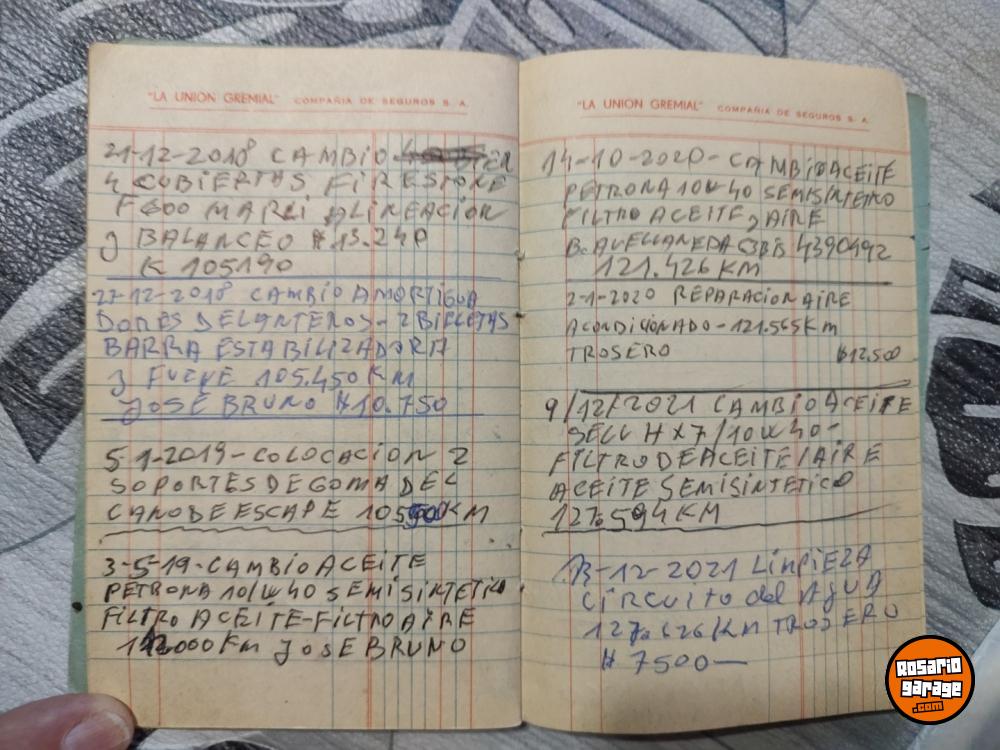 "LA UNION GREMIAL" COMPAÑIA DE SEGUROS S. A.
21-12-2018 CAMBIO
4 CUBIERTAS FIRESTONE
F600 ALINEACION
y BALANCEO $13.240
K 105190
27-12-2018 CAMBIO AMORTIGUA
DORES DELANTEROS- 2 BIELETAS
BARRA ESTABILIZADORA
y FUELLE 105.450 KM
JOSÉ BRUNO $10.750
5-1-2019-COLOCACION 2
SOPORTES DE GOMA DEL
CAÑO DE ESCAPE KM
3-5-19-CAMBIO ACEITE
PETRONA 10/W40 SEMISINTETICO
FILTRO ACEITE-FILTRO AIRE
KM JOSE BRUNO
"LA UNION GREMIAL" COMPAÑIA DE SEGUROS S. A.
14-10-2020-CAMBIO ACEITE
PETRONA 10W40 SEMISINTETICO
FILTRO ACEITE y AIRE
Bo AVELLANEDA 4390492
121.426 KM
2-1-2020 REPARACION AIRE
ACONDICIONADO-121.565 Km
TROSERO $12.500
9/12/2021 CAMBIO ACEITE
SELL HX7/10W40-
FILTRO DE ACEITE/AIRE
ACEITE SEMISINTETICO
127.594 KM
13-12-2021 LIMPIEZA
CIRCUITO del AGUA
127.626 KM TROSERO
$ 7500—
Rosario
garage
.com